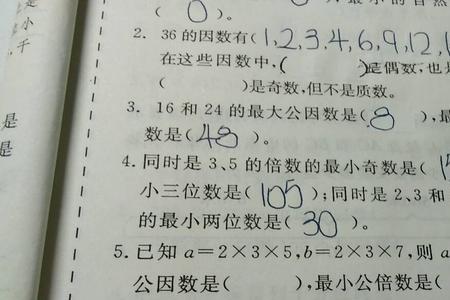 是
小
,千
是
是
( 0 )。
2. 36 的因数有(1,2,3,4,6,9,12,
在这些因数中,( )是偶数,也
( )是奇数,但不是质数。
3. 16 和 24 的最大公因数是( 8 ),
数是(48 )。
4. 同时是 3、5 的倍数的最小奇数是(
小三位数是( 105 );同时是 2、3 和
的最小两位数是( 30 )。
5. 已知 a=2×3×5,b=2×3×7,则 a
公因数是( ),最小公倍数是(